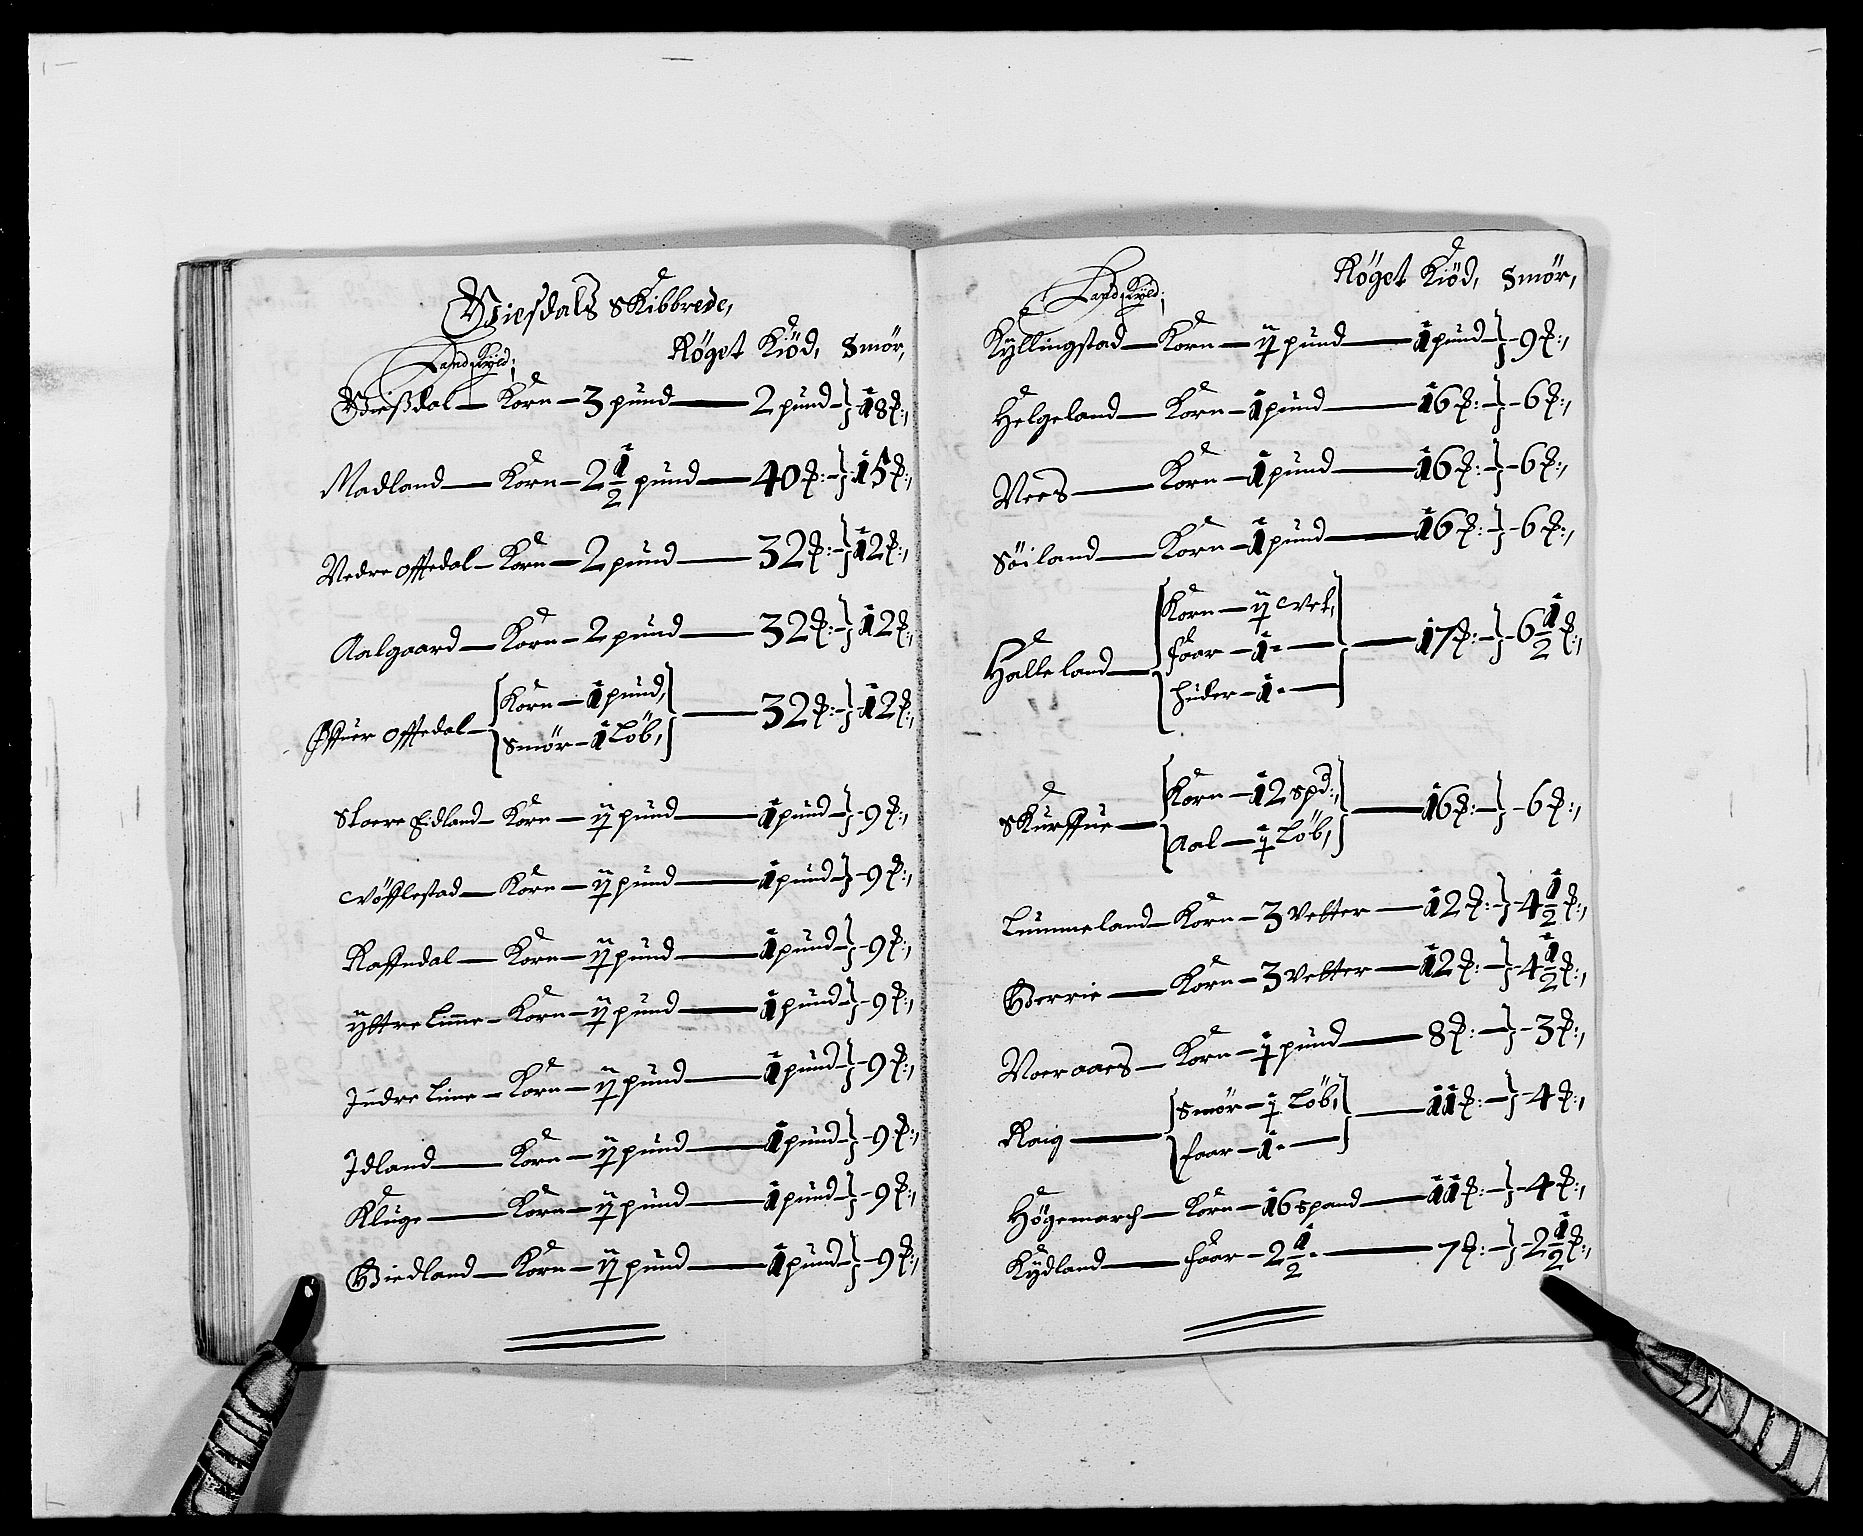 Giesdals Skibbrede,
Landskyld; Röget Kiöd, Smör,
Giesdal — Korn — 3 pund — 2 pund } 18 ℔:,
Madland — Korn — 2 1/2 pund — 40 ℔: } 15 ℔:,
Nedre Offtedal — Korn — 2 pund — 32 ℔: } 12 ℔:,
Aalgaard — Korn — 2 pund — 32 ℔: } 12 ℔:,
Öffuer Offtedal { Korn — 1 pund,
Smör — 1 Löb, } — 32 ℔: } 12 ℔:,
Stoere Eidland — Korn — ij pund — 1 pund } 9 ℔:,
Wöfflestad — Korn — ij pund — 1 pund } 9 ℔:,
Raffndal — Korn — ij pund — 1 pund } 9 ℔:,
Yttre Lime — Korn — ij pund — 1 pund } 9 ℔:,
Indre Lime — Korn — ij pund — 1 pund } 9 ℔:,
Idland — Korn — ij pund — 1 pund } 9 ℔:,
Kluge — Korn — ij pund — 1 pund } 9 ℔:,
Giedland — Korn — ij pund — 1 pund } 9 ℔:,
Landskyld; Röget Kiöd, Smör,
Kyllingstad — Korn — ij pund — 1 pund } 9 ℔:,
Helgeland — Korn — 1 pund — 16 ℔: } 6 ℔:,
Nees — Korn — 1 pund — 16 ℔: } 6 ℔:,
Söiland — Korn — 1 pund — 16 ℔: } 6 ℔:,
Halleland { Korn — ij Vet,
Faar — 1 —
Huder — 1 — } — 17 ℔: } 6 1/2 ℔:,
Skurffue { Korn — 12 spd:,
Aal — j Löb, } — 16 ℔: } 6 ℔:,
Lummeland — Korn — 3 Vetter — 12 ℔: } 4 1/2 ℔:,
Berrie — Korn — 3 Vetter — 12 ℔: } 4 1/2 ℔:,
Noeraaes — Korn — j pund — 8 ℔: } 3 ℔:,
Raig { Smör — j Löb,
Faar — 1 — } — 11 ℔: } 4 ℔:,
Högemarch — Korn — 16 spand — 11 ℔: } 4 ℔:,
Kydland — Faar — 2 1/2 — 7 ℔: } 2 1/2 ℔:,